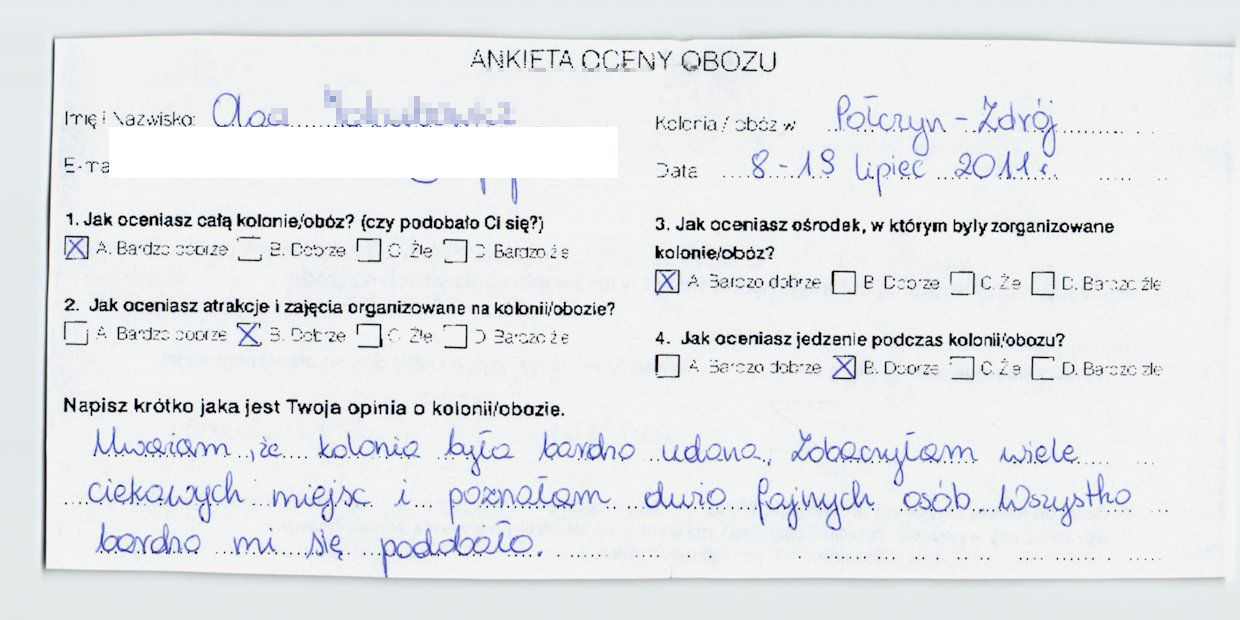 ANKIETA OCENY OBOZU
Imię i Nazwisko:
Kolonia / obóz w Połczyn-Zdrój
Data 8-19 lipiec 2011 r.
1. Jak oceniasz całą kolonie/obóz? (czy podobało Ci się?)
A. Bardzo dobrze B. Dobrze C. Źle D. Bardzo źle
2. Jak oceniasz atrakcje i zajęcia organizowane na kolonii/obozie?
A. Bardzo dobrze B. Dobrze C. Źle D. Bardzo źle
3. Jak oceniasz ośrodek, w którym były zorganizowane
kolonie/obóz?
A. Bardzo dobrze B. Dobrze C. Źle D. Bardzo źle
4. Jak oceniasz jedzenie podczas kolonii/obozu?
A. Bardzo dobrze B. Dobrze C. Źle D. Bardzo źle
Napisz krótko jaka jest Twoja opinia o kolonii/obozie.
Uważam, że kolonia była bardzo udana. Zobaczyłam wiele
ciekawych miejsc i poznałam dużo fajnych osób. Wszystko
bardzo mi się podobało.